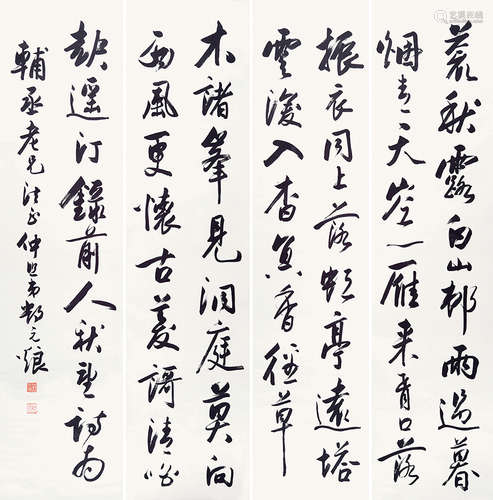 荒秋露白山邨雨過暮
烟青天空一雁来胥口落
振衣同上落虹亭遠塔
雲深入杳冥香徑草
木諸峯見洞庭莫向
西風更懷古菱謌清唱
起遥汀錄前人秋望詩為
輔丞老兄法正仲弟元